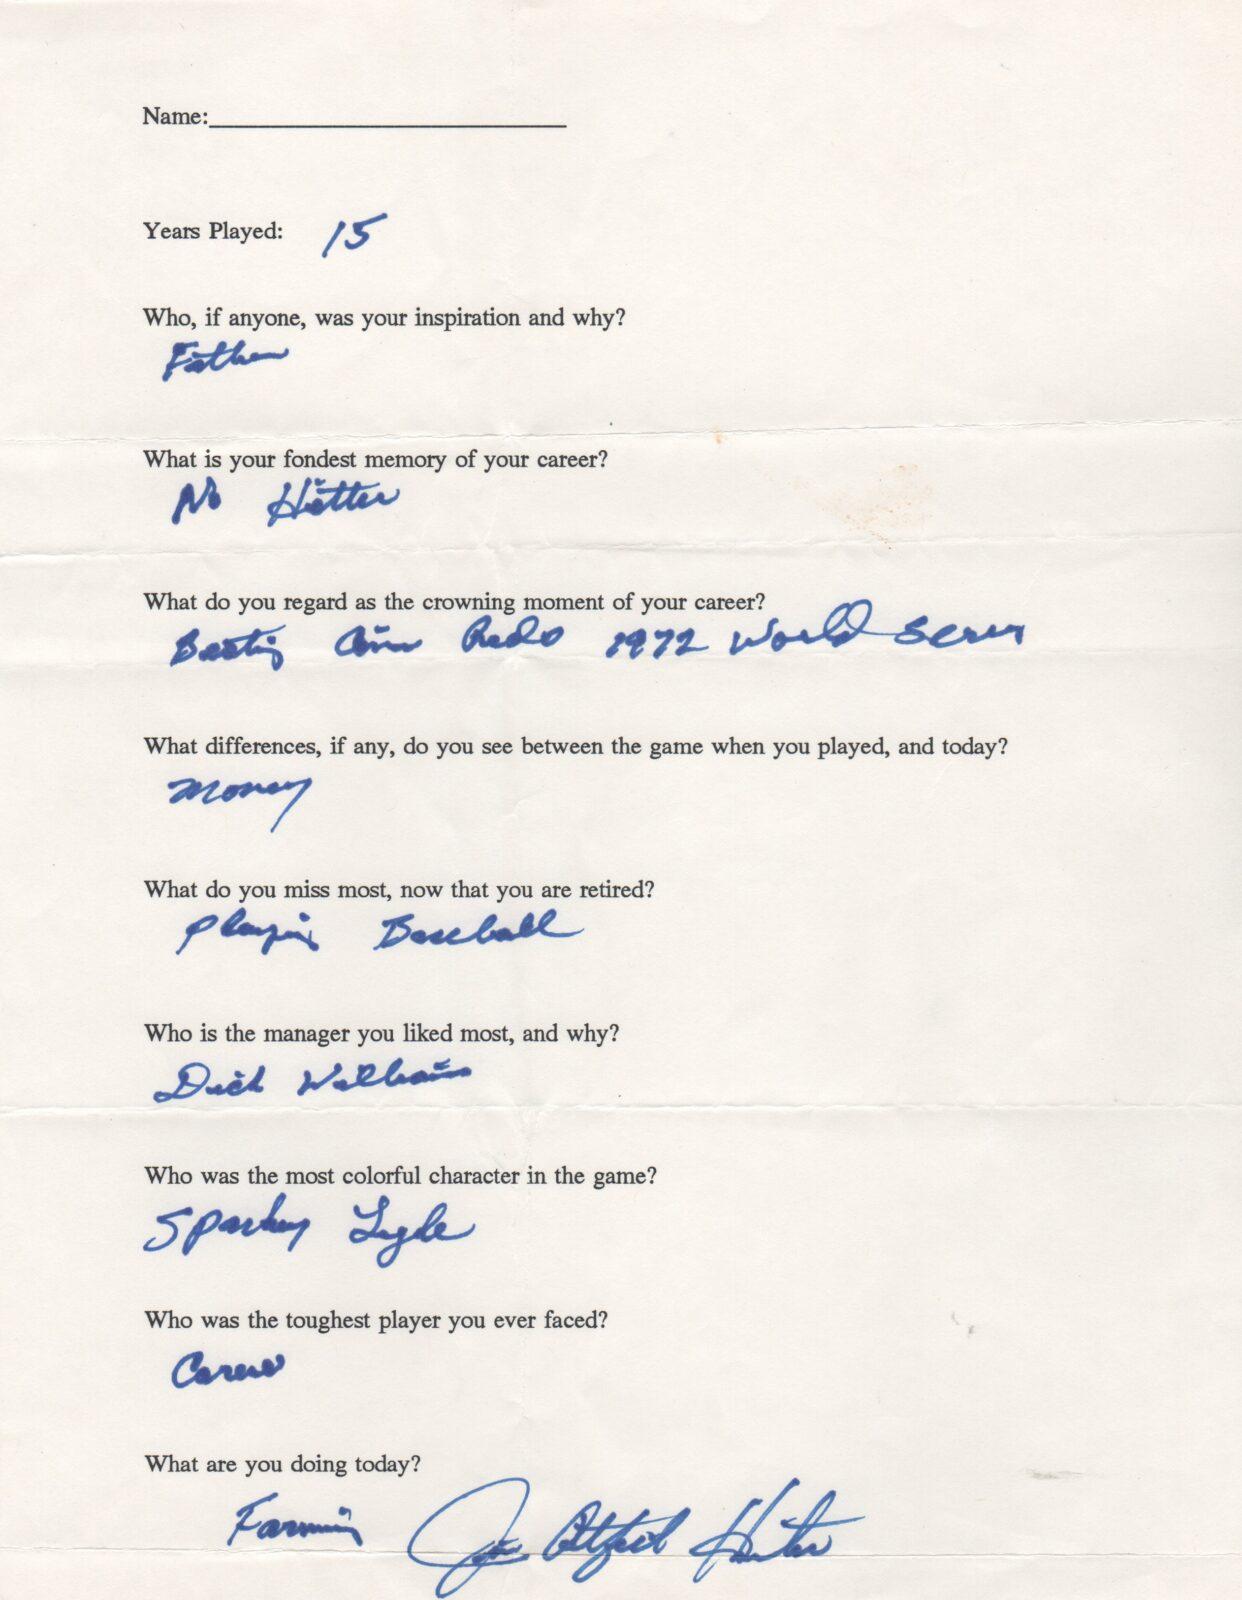 Name:
Years Played: 15
Who, if anyone, was your inspiration and why?
Father
What is your fondest memory of your career?
No Hitter
What do you regard as the crowning moment of your career?
Beating Cinn Reds 1972 World Series
What differences, if any, do you see between the game when you played, and today?
Money
What do you miss most, now that you are retired?
Playing Baseball
Who is the manager you liked most, and why?
Dick Williams
Who was the most colorful character in the game?
Sparky Lyle
Who was the toughest player you ever faced?
Carew
What are you doing today?
Farming Jim Catfish Hunter